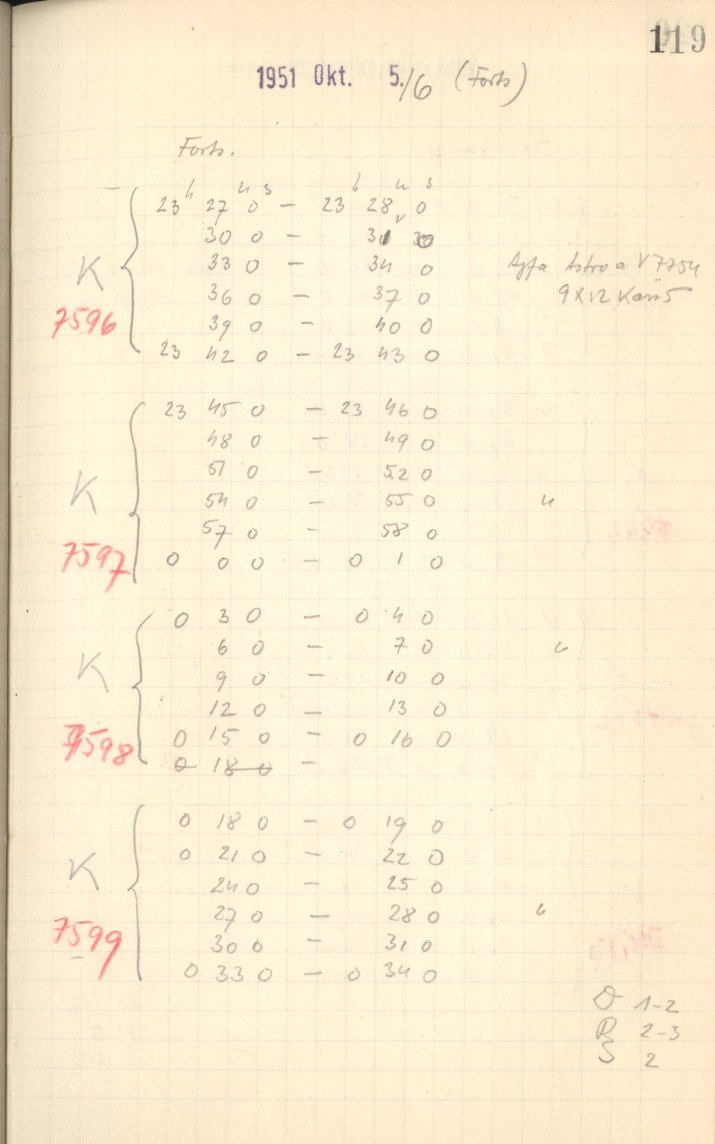 119
1951 Okt. 5./6 (Forts)
Forts.
h m s h m s
23 27 0 — 23 28 0
30 0 — 31 0
K 33 0 — 34 0 Agfa Astro a V 7754
7596 36 0 — 37 0 9X12
39 0 — 40 0
23 42 0 — 23 43 0
23 45 0 — 23 46 0
48 0 — 49 0
K 51 0 — 52 0
54 0 — 55 0 "
7597 57 0 — 58 0
0 0 0 — 0 1 0
0 3 0 — 0 4 0
6 0 — 7 0 "
K 9 0 — 10 0
12 0 — 13 0
7598 0 15 0 — 0 16 0
0 18 0 —
0 18 0 — 0 19 0
0 21 0 — 22 0
K 24 0 — 25 0
27 0 — 28 0 "
7599 30 0 — 31 0
0 33 0 — 0 34 0
D 1-2
R 2-3
S 2